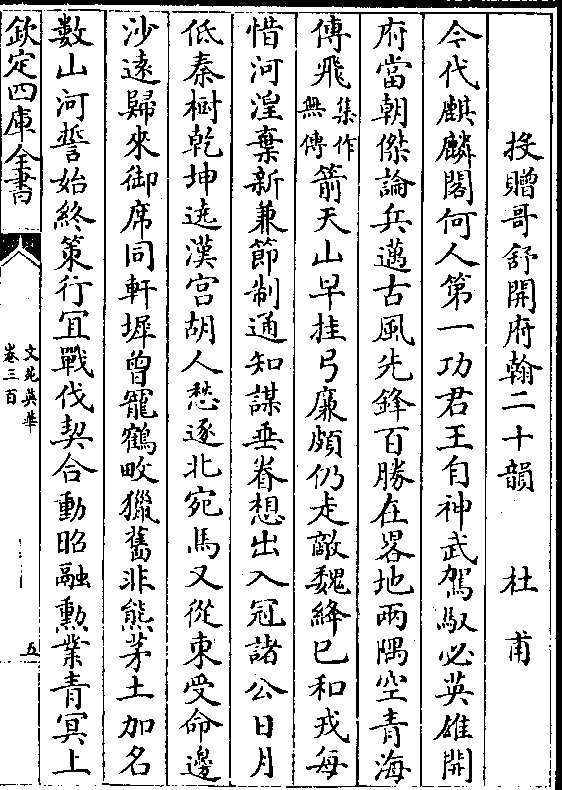 投贈哥舒開府翰二十韻 杜甫
今代麒麟閣何人第一功君王自神武駕馭必英雄開
府當朝傑論兵邁古風先鋒百勝在畧地兩隅空青海
傳飛集作無傳箭天山早挂弓廉頗仍走敵魏絳巳和戎每
惜河湟棄新兼節制通知謀垂眷想出入冠諸公日月
低秦樹乾坤遶漢宫胡人愁逐北宛馬又從東受命邊
沙遠歸來御席同軒墀曾寵鶴畋獵舊非熊茅土加名
數山河誓始終策行冝戰伐契合動昭融勲業青冥上
欽定四庫全書
文苑英華
卷三百
五